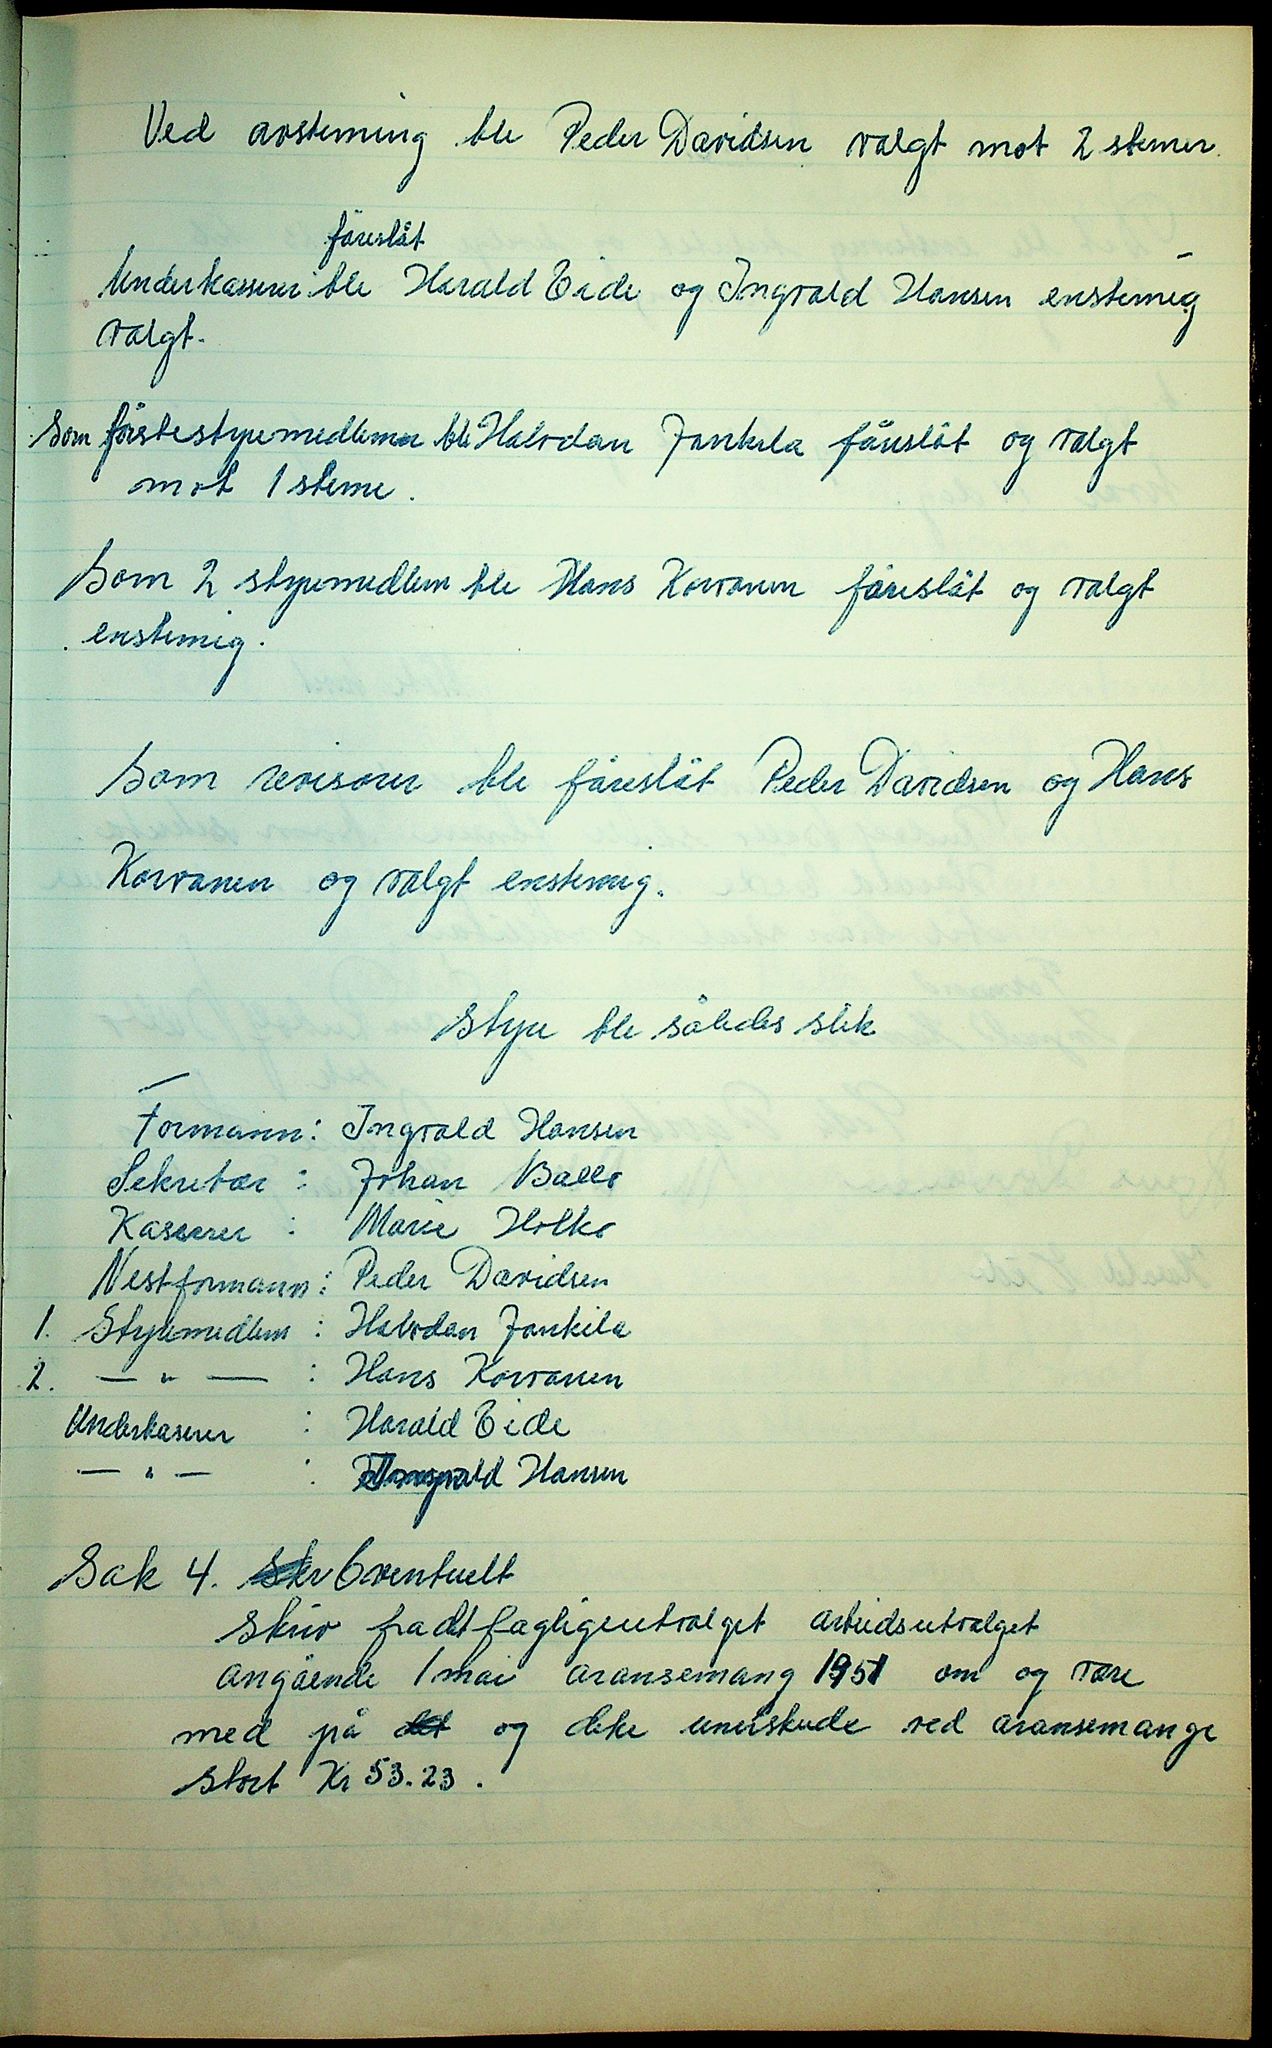 Ved avsteming ble Peder Davidsen valgt mot 2 stemer.
föreslåt
Underkasserer: ble Harald Eide, og Ingvald Hansen enstemig
valgt.
Som förstestyremedlemer ble Halvdan Jankila föreslåt og valgt
mot 1 steme.
Som 2 styremedlem ble Hans Korvanen föreslåt og valgt
enstemig.
Som revisorer ble föreslåt Peder Davidsen og Hans
Korvanen og valgt enstemig.
Styre ble således slik
Formann: Ingvald Hansen
Sekretær : Johan Ballo
Kasserer : Marie Holko
Nestformann: Peder Davidsen
1. Styremedlem : Halvdan Jankila
2. — " — : Hans Korvanen
Underkaserer : Harald Eide
— " — : Ingvald Hansen
Sak 4. Eventuelt
Skriv fra det fagligeutvalget arbeidsutvalget
angående 1 mai aransemang 1951 om og være
med på det og deke unerskude ved aransemange
stort Kr 53.23.